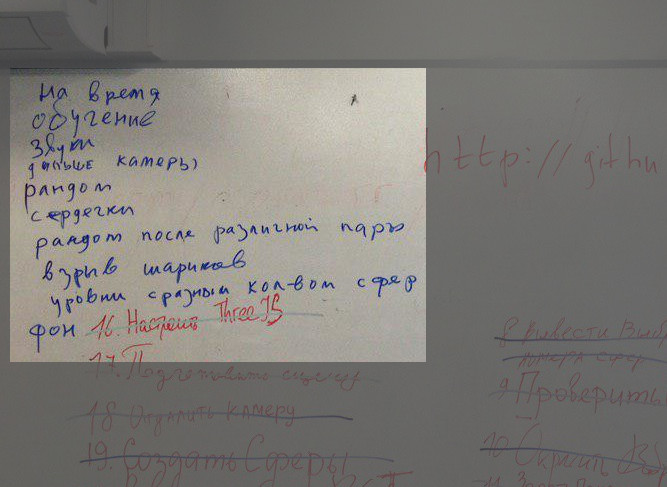 На время
обучение
звуки
дальше камеры
рандом
сердечки
рандом после различной пары
взрыв шариков
уровни с разным кол-вом сфер
фон 16. Настроить ThreeJS
17. Подготовить сцену
18 Отдалить камеру
19. Создать Сферы
http://githu
8 Вывести
номера сфер
9 Проверить
10